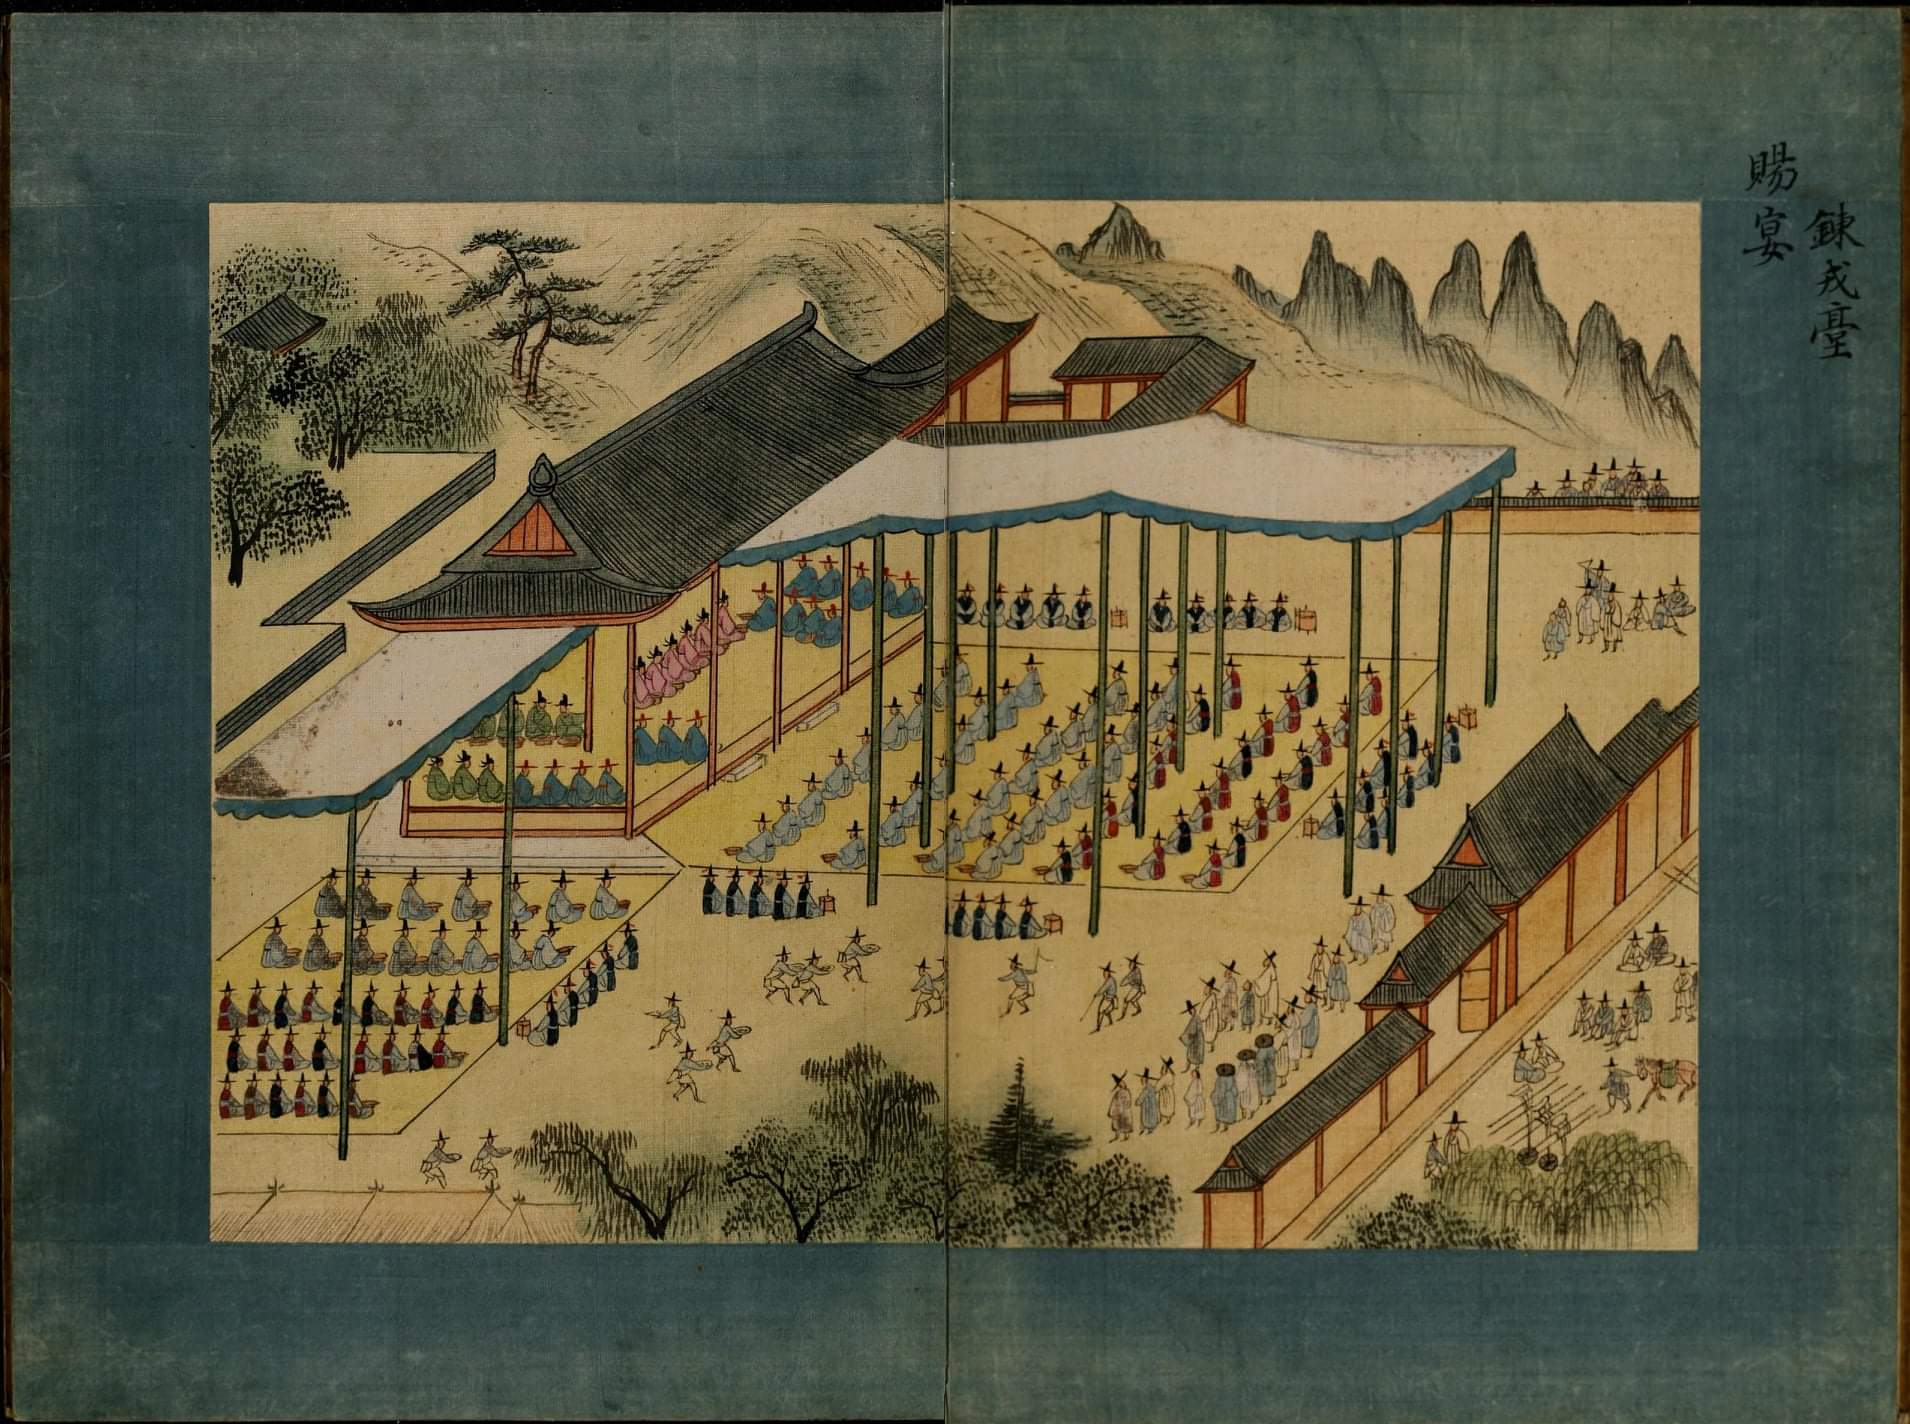 鍊戎臺
賜宴